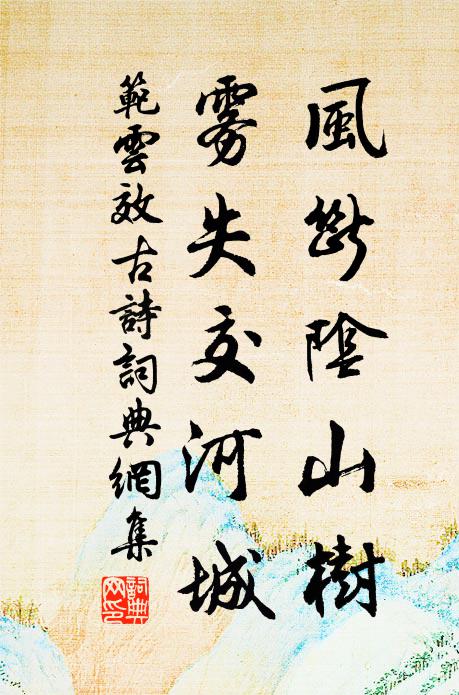 風斷陰山樹
霧失交河城
範雲效古詩詞典網集
詞典